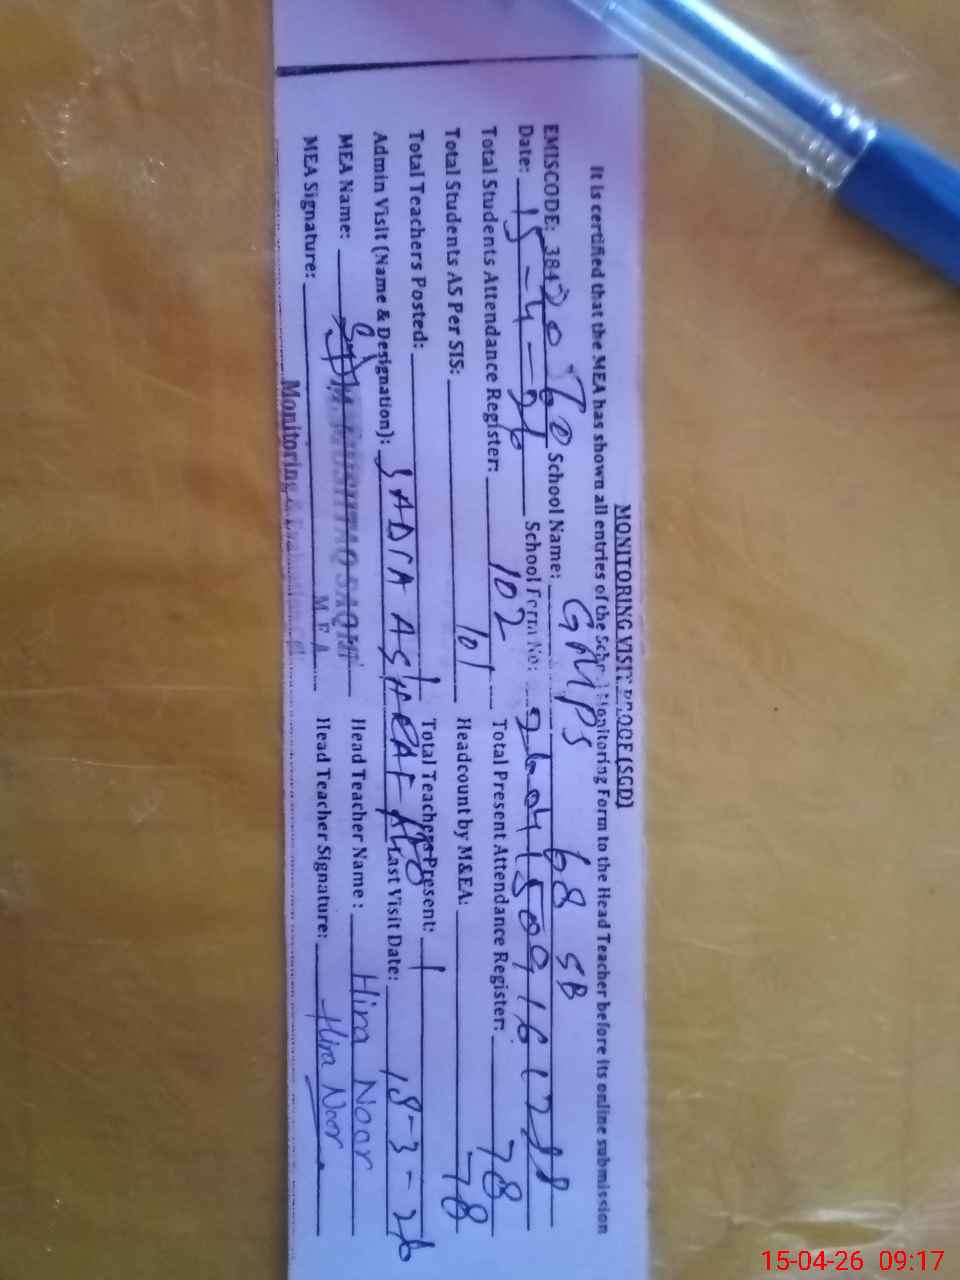 MONITORING VISIT PROOF (SGD)
It is certified that the MEA has shown all entries of the School Monitoring Form to the Head Teacher before its online submission
EMISCODE: 384 School Name: GMPS 68 SB
Date: 15-4-26 School Form No:
Total Students Attendance Register: 102 Total Present Attendance Register: 78
Total Students AS Per SIS: 101 Headcount by M&EA: 78
Total Teachers Posted: 1 Total Teachers Present: 1
Admin Visit (Name & Designation): SADIA ASHRAF Last Visit Date: 18-3-26
MEA Name: M. MUSHTAQ Head Teacher Name: Hira Noor
M E A
MEA Signature: Head Teacher Signature: Hira Noor
Monitoring & Evaluation Cell
15-04-26 09:17